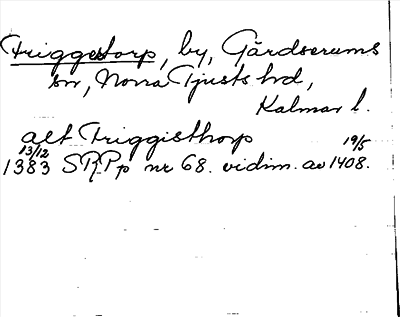 Friggestorp, by, Gärdserums
sn, Norra Tjusts hd,
Kalmar l.
alt Friggisthorp
13/12 19/5
1383 SRPp nr 68. vidim. av 1408.